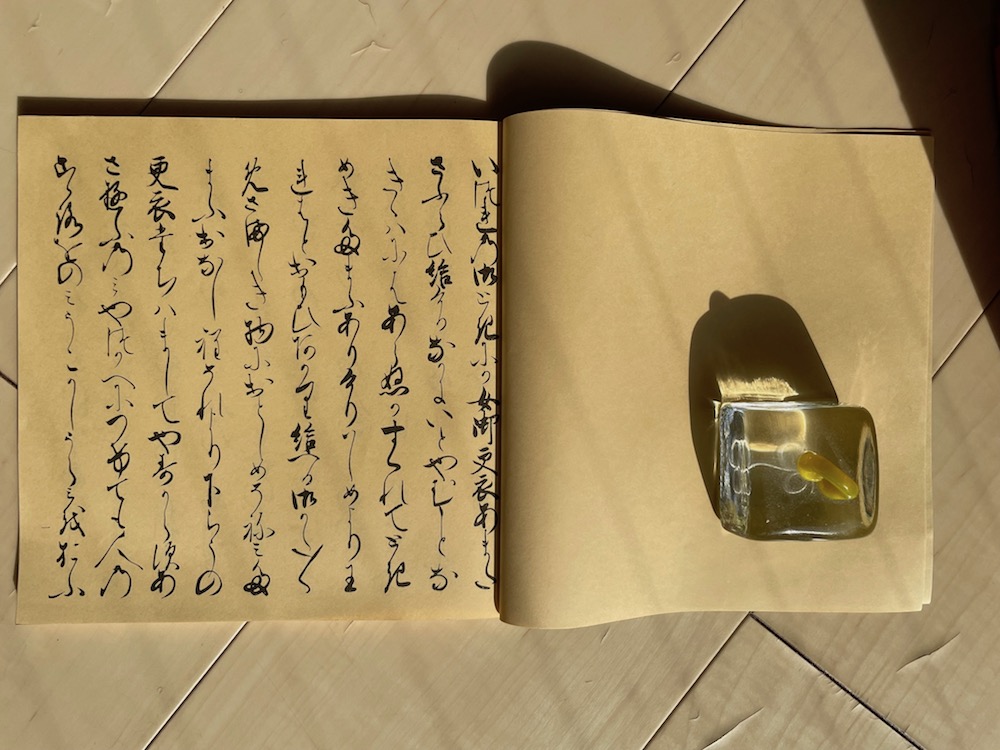 いつれの御ときにか女御更衣あまた
さふらひ給けるなかにいとやむことな
きゝハにはあらぬかすくれてとき
めきたまふありけりはしめよりわ
れはとおもひあかり給へる御かた〳〵
めさましき物におとしめそねミた
まふおなし程それより下らうの
更衣たちハましてやすからすあ
さ夕のミやつかへにつけても人の
心をのミうこかしうらミをおふ